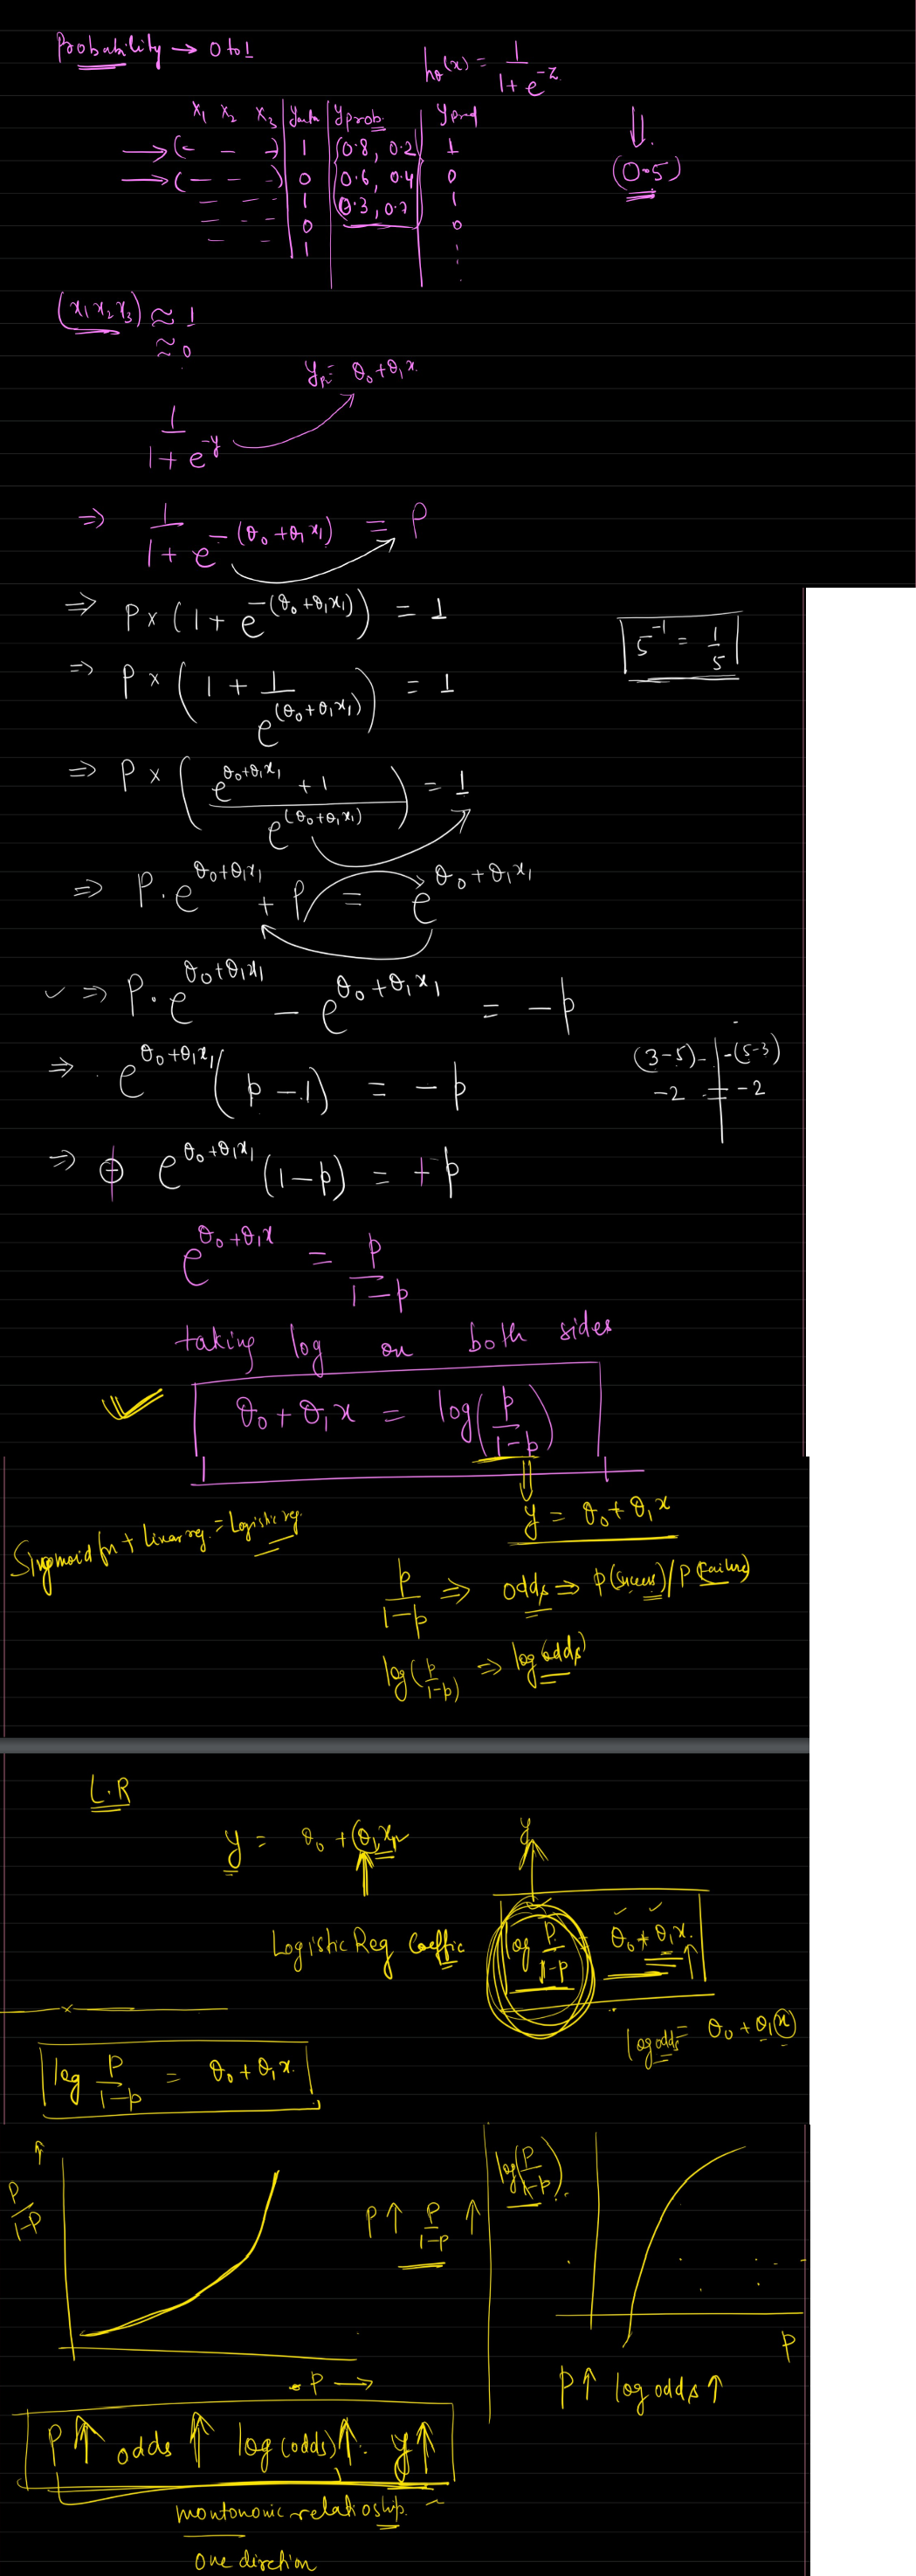 Probability → 0 to 1
hθ(x) = 1/(1 + e^-z)
x1 x2 x3 | yactu | yprob | ypred
→ (- - -) | 1 | (0.8, 0.2) | 1
→ (- - -) | 0 | (0.6, 0.4) | 0
- - - | 1 | (0.3, 0.7) | 1
- - - | 0 | | 0
- - | 1 | | :
⇓
(0.5)
(x1 x2 x3) ≈ 1
≈ 0
yp = θ0 + θ1 x
1/(1 + e^-y)
⇒ 1/(1 + e^-(θ0 + θ1 x1)) = P
⇒ P x (1 + e^-(θ0 + θ1 x1)) = 1
5^-1 = 1/5
⇒ P x (1 + 1/e^(θ0 + θ1 x1)) = 1
⇒ P x ((e^θ0+θ1x1 + 1)/e^(θ0+θ1x1)) = 1
⇒ P. e^θ0+θ1x1 + P = e^θ0+θ1x1
✓ ⇒ P. e^θ0+θ1x1 - e^θ0+θ1x1 = -p
⇒ e^θ0+θ1x1 (p - 1) = - p
(3-5) - | -(5-3)
-2 = -2
⇒ + e^θ0+θ1x1 (1-p) = + p
e^θ0+θ1x = p/(1-p)
taking log on both sides
✓ θ0 + θ1 x = log(p/(1-p))
⇓
y = θ0 + θ1 x
Singmoid fn + Linear reg. = Logistic reg.
p/(1-p) ⇒ odds ⇒ P(success)/P(Failure)
log(p/(1-p)) ⇒ log(odds)
L.R
y = θ0 + (θ1 x1
y
Logistic Reg Coeffic
log P/(1-P) = θ0 + θ1 x. ↑
log odds = θ0 + θ1(x)
log P/(1-P) = θ0 + θ1 x.
↑
P/(1-P)
P↑ P/(1-P) ↑
log(P/(1-P))
P →
P
P↑ log odds ↑
P↑ odds ↑ log(odds)↑. y↑
montononic relatioship.
one dirction